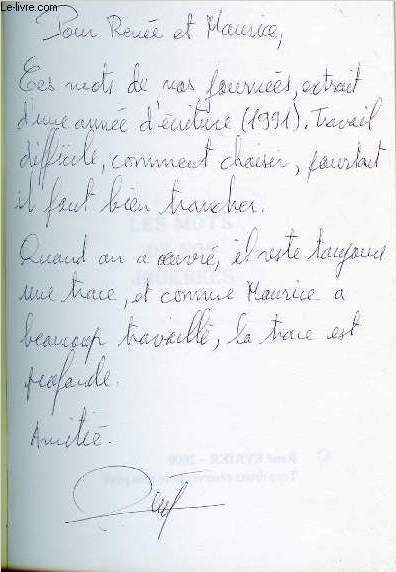 Le-livre.com
Pour Renée et Maurice,
Ces mots de nos journées, extrait
d'une année d'écriture (1991). Travail
difficile, comment choisir, pourtant
il faut bien trancher.
Quand on a œuvré, il reste toujours
une trace, et comme Maurice a
beaucoup travaillé, la trace est
profonde.
Amitié.
LES MOTS
© René EYRIER - 2000